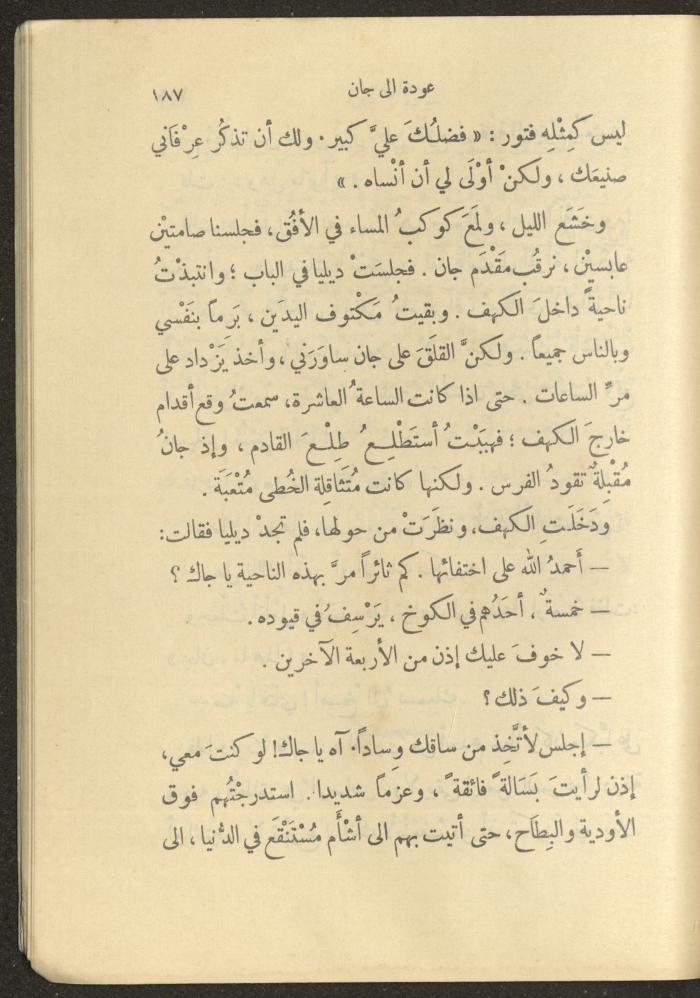 عودة الى جان
١٨٧
ليس كمِثْلِه فتور : « فضلُكَ عليَّ كبير . ولك أن تذكُر عِرْفَاني
صنيعَك ، ولكنْ أوْلَى لي أن أنْساه . »
وخَشَع الليل ، ولمَعَ كوكبُ المساء في الأفُق ، فجلسنا صامتيْن
عابسيْن ، نرقُب مَقْدَم جان . فجلسَتْ ديليا في الباب ؛ وانتبذْتُ
ناحيةً داخلَ الكهف . وبقيتُ مَكْتوف اليدَين ، بَرِماً بنَفْسي
وبالناس جميعاً . ولكنَّ القلَقَ على جان ساوَرَني ، وأخذ يَزْداد على
مرِّ الساعات . حتى اذا كانت الساعةُ العاشرة، سمعتُ وقع أقدام
خارجَ الكهف ؛ فهبَبْتُ أستَطْلِعُ طِلْعَ القادم ، وإذ جانُ
مُقْبِلةٌ تقودُ الفرس . ولكنها كانت مُتَثاقِلة الخُطى مُتْعَبَة .
ودَخَلَتِ الكهف، ونظَرَتْ من حولها، فلم تجدْ ديليا فقالت:
— أَحمدُ الله على اختفائها . كم ثائراً مرَّ بهذه الناحية يا جاك ؟
— خمسةٌ ، أحَدُهم في الكوخ ، يَرْسِفُ في قيوده .
— لا خوفَ عليك إذن من الأربعة الآخرين .
— وكيفَ ذلك ؟
— إجلس لأتَّخِذ من ساقك وِساداً . آه يا جاك! لو كنتَ معي،
إذن لرأيتَ بَسَالةً فائقةً ، وعزماً شديدا . استدرجْتُهم فوق
الأودية والبِطَاح، حتى أتيت بهم الى أشْأَم مُسْتَنْقَع في الدُّنيا ، الى